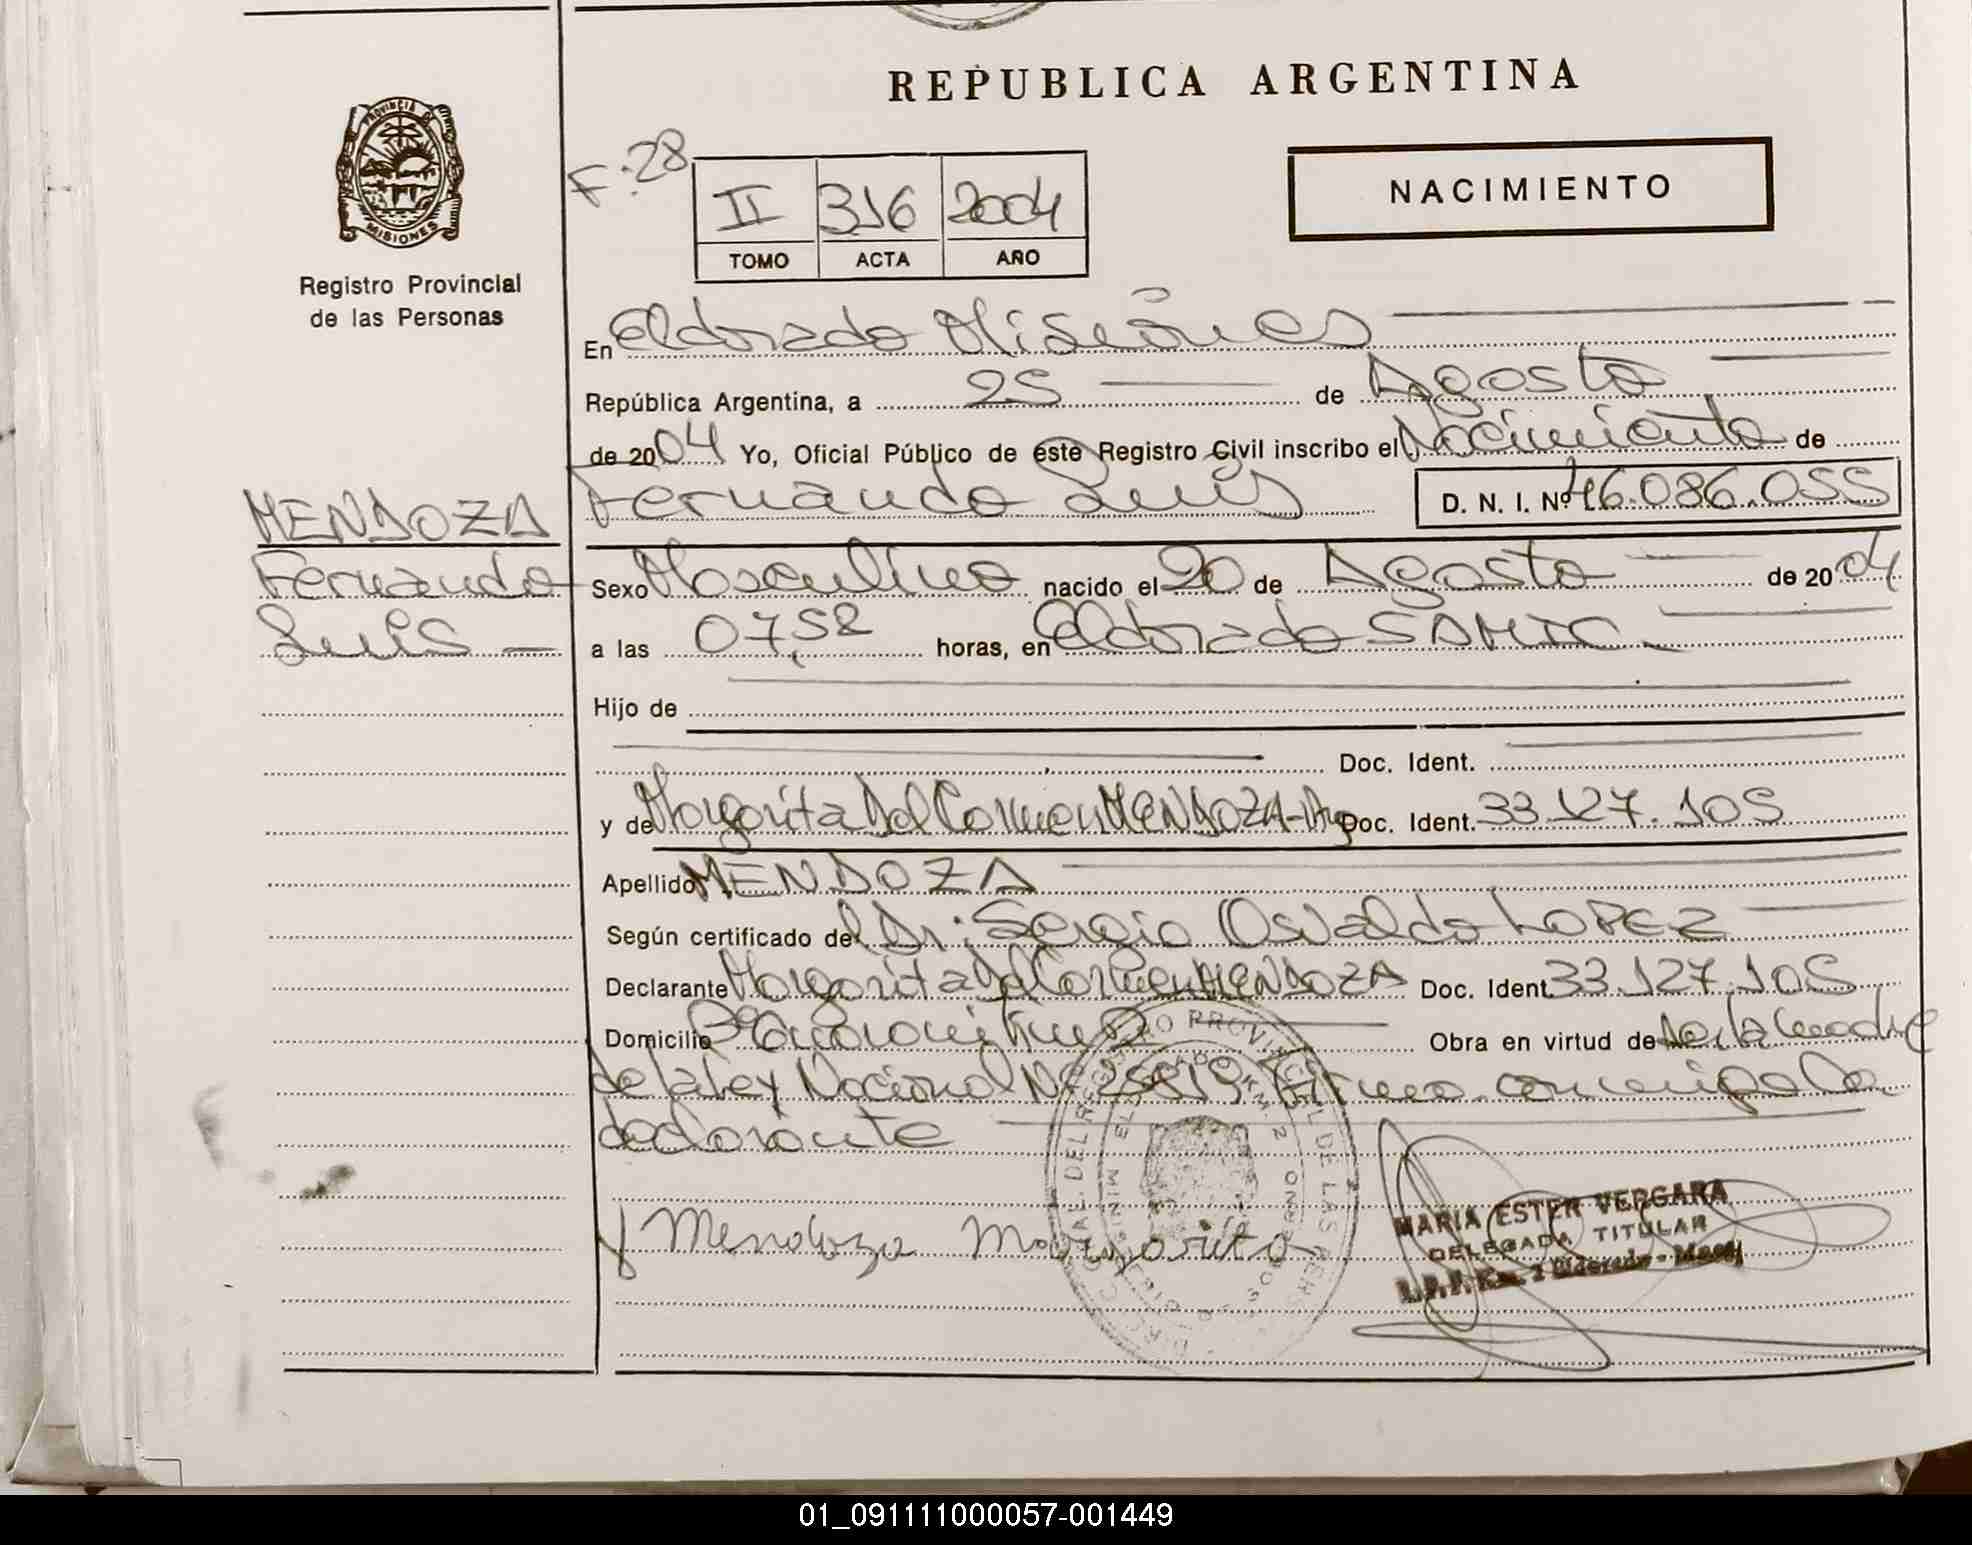 REPUBLICA ARGENTINA
PROVINCIA DE MISIONES
Registro Provincial
de las Personas
F:28
II 316 2004
TOMO ACTA AÑO
NACIMIENTO
En Eldorado Misiones
República Argentina, a 25 de Agosto
de 2004 Yo, Oficial Público de este Registro Civil inscribo el Nacimiento de
Fernando Luis D. N. I. Nº 46.086.055
MENDOZA
Fernando
Luis
Sexo Masculino nacido el 20 de Agosto de 2004
a las 07,52 horas, en Eldorado SAMIC
Hijo de
Doc. Ident.
y de Margarita Del Carmen MENDOZA-Arg Doc. Ident. 33.127.105
Apellido MENDOZA
Según certificado del Dr: Sergio Osvaldo LOPEZ
Declarante Margarita Del Carmen MENDOZA Doc. Ident. 33.127.105
Domicilio Bº Obra en virtud de ser la madre
de la Ley Nacional Nº Firma conmigo la
declarante
Mendoza Margarita
MARIA ESTER VERGARA
DELEGADA TITULAR
Km. 2 Eldorado - Mnes
01_091111000057-001449